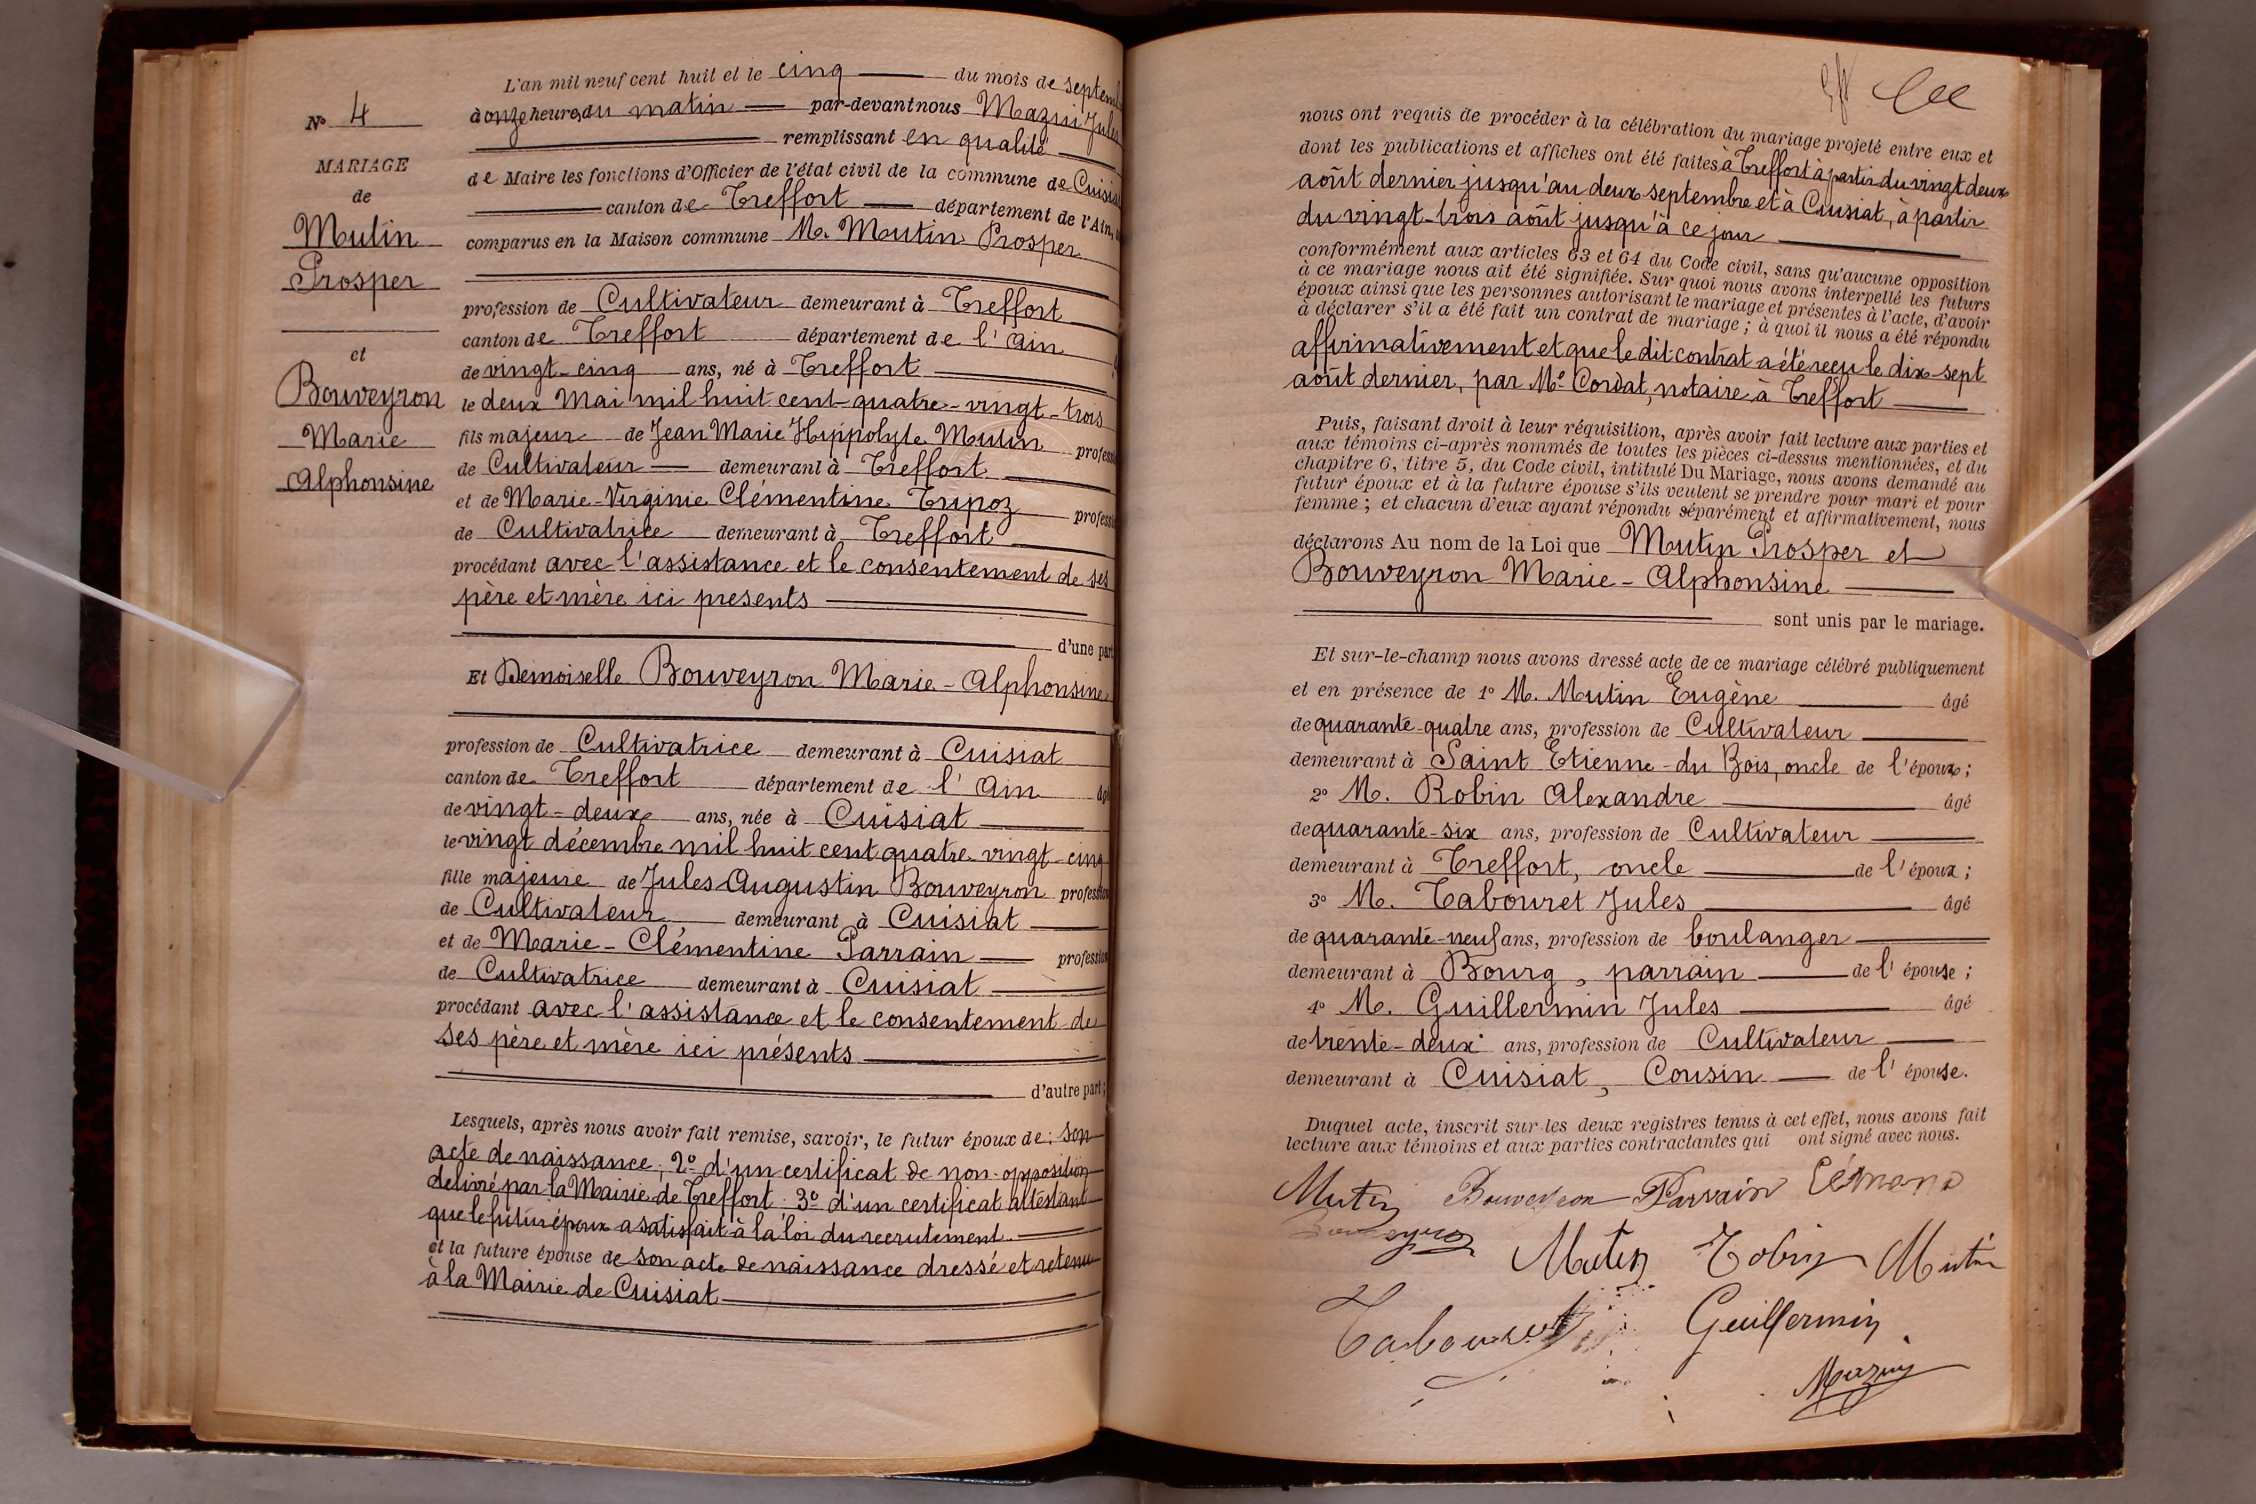 N° 4
MARIAGE
de
Mutin
Prosper
et
Bouveyron
Marie
Alphonsine
L'an mil neuf cent huit et le cinq du mois de septemb
à onze heures du matin par-devant nous Mazuy Jules
remplissant en qualité
de Maire les fonctions d'Officier de l'état civil de la commune de Cuisia
canton de Treffort département de l'Ain,
comparus en la Maison commune M. Mutin Prosper
profession de Cultivateur demeurant à Treffort
canton de Treffort département de l'Ain
de vingt-cinq ans, né à Treffort
le deux Mai mil huit cent quatre-vingt-trois
fils majeur de Jean Marie Hyppolyte Mutin professi
de Cultivateur demeurant à Treffort
et de Marie-Virginie Clémentine Tripoz professi
de Cultivatrice demeurant à Treffort
procédant avec l'assistance et le consentement de ses
père et mère ici presents
d'une part
Et Demoiselle Bouveyron Marie-Alphonsine
profession de Cultivatrice demeurant à Cuisiat
canton de Treffort département de l'Ain âg
de vingt-deux ans, née à Cuisiat
le vingt décembre mil huit cent quatre vingt-cinq
fille majeure de Jules Augustin Bouveyron profession
de Cultivateur demeurant à Cuisiat
et de Marie-Clémentine Parrain profession
de Cultivatrice demeurant à Cuisiat
procédant avec l'assistance et le consentement de
ses père et mère ici présents
d'autre part;
Lesquels, après nous avoir fait remise, savoir, le futur époux de: son
acte de naissance, 2° d'un certificat de non-opposition
delivré par la Mairie de Treffort 3° d'un certificat attestant
que le futur époux a satisfait à la loi du recrutement
et la future épouse de son acte de naissance dressé et retenu
à la Mairie de Cuisiat
nous ont requis de procéder à la célébration du mariage projeté entre eux et
dont les publications et affiches ont été faites à Treffort à partir du vingt deux
août dernier jusqu'au deux septembre et à Cuisiat, à partir
du vingt-trois août jusqu'à ce jour
conformément aux articles 63 et 64 du Code civil, sans qu'aucune opposition
à ce mariage nous ait été signifiée. Sur quoi nous avons interpellé les futurs
époux ainsi que les personnes autorisant le mariage et présentes à l'acte, d'avoir
à déclarer s'il a été fait un contrat de mariage; à quoi il nous a été répondu
affirmativement et que le dit contrat a été reçu le dix-sept
août dernier, par Me Cordat, notaire à Treffort
Puis, faisant droit à leur réquisition, après avoir fait lecture aux parties et
aux témoins ci-après nommés de toutes les pièces ci-dessus mentionnées, et du
chapitre 6, titre 5, du Code civil, intitulé Du Mariage, nous avons demandé au
futur époux et à la future épouse s'ils veulent se prendre pour mari et pour
femme; et chacun d'eux ayant répondu séparément et affirmativement, nous
déclarons Au nom de la Loi que Mutin Prosper et
Bouveyron Marie-Alphonsine
sont unis par le mariage.
Et sur-le-champ nous avons dressé acte de ce mariage célébré publiquement
et en présence de 1° M. Mutin Eugène âgé
de quarante-quatre ans, profession de Cultivateur
demeurant à Saint Etienne-du Bois, oncle de l'époux;
2° M. Robin Alexandre âgé
de quarante-six ans, profession de Cultivateur
demeurant à Treffort, oncle de l'époux;
3° M. Tabouret Jules âgé
de quarante-neuf ans, profession de boulanger
demeurant à Bourg, parrain de l'épouse;
4° M. Guillermin Jules âgé
de trente-deux ans, profession de Cultivateur
demeurant à Cuisiat, Cousin de l'épouse.
Duquel acte, inscrit sur les deux registres tenus à cet effet, nous avons fait
lecture aux témoins et aux parties contractantes qui ont signé avec nous.
Mutin Bouveyron Parrain
Mutin Robin Mutin
Tabouret Guillermin
Mazuy